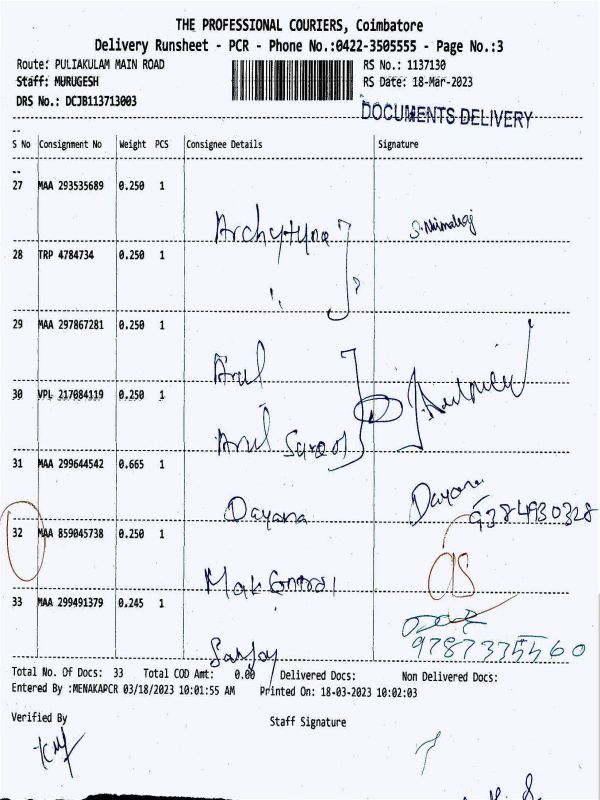 THE PROFESSIONAL COURIERS, Coimbatore
Delivery Runsheet - PCR - Phone No.:0422-3505555 - Page No.:3
Route: PULIAKULAM MAIN ROAD RS No.: 1137130
Staff: MURUGESH RS Date: 18-Mar-2023
DRS No.: DCJB113713003
DOCUMENTS DELIVERY
S No Consignment No Weight PCS Consignee Details Signature
27 MAA 293535689 0.250 1
28 TRP 4784734 0.250 1
29 MAA 297867281 0.250 1
Arul
30 VPL 217084119 0.250 1
Arul
31 MAA 299644542 0.665 1
Dayana Dayana
9384930328
32 MAA 859045738 0.250 1
33 MAA 299491379 0.245 1
Sanjay 9787375560
Total No. Of Docs: 33 Total COD Amt: 0.00 Delivered Docs: Non Delivered Docs:
Entered By :MENAKAPCR 03/18/2023 10:01:55 AM Printed On: 18-03-2023 10:02:03
Verified By Staff Signature